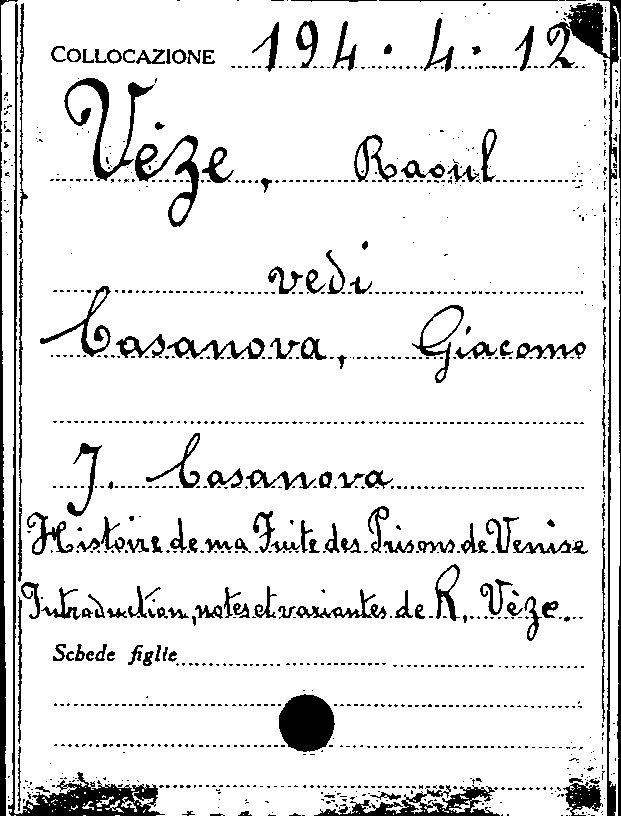 COLLOCAZIONE 194 · 4 · 12
Vèze, Raoul
vedi
Casanova, Giacomo
J. Casanova
Histoire de ma Fuite des Prisons de Venise
Introduction, notes et variantes de R. Vèze.
Schede figlie